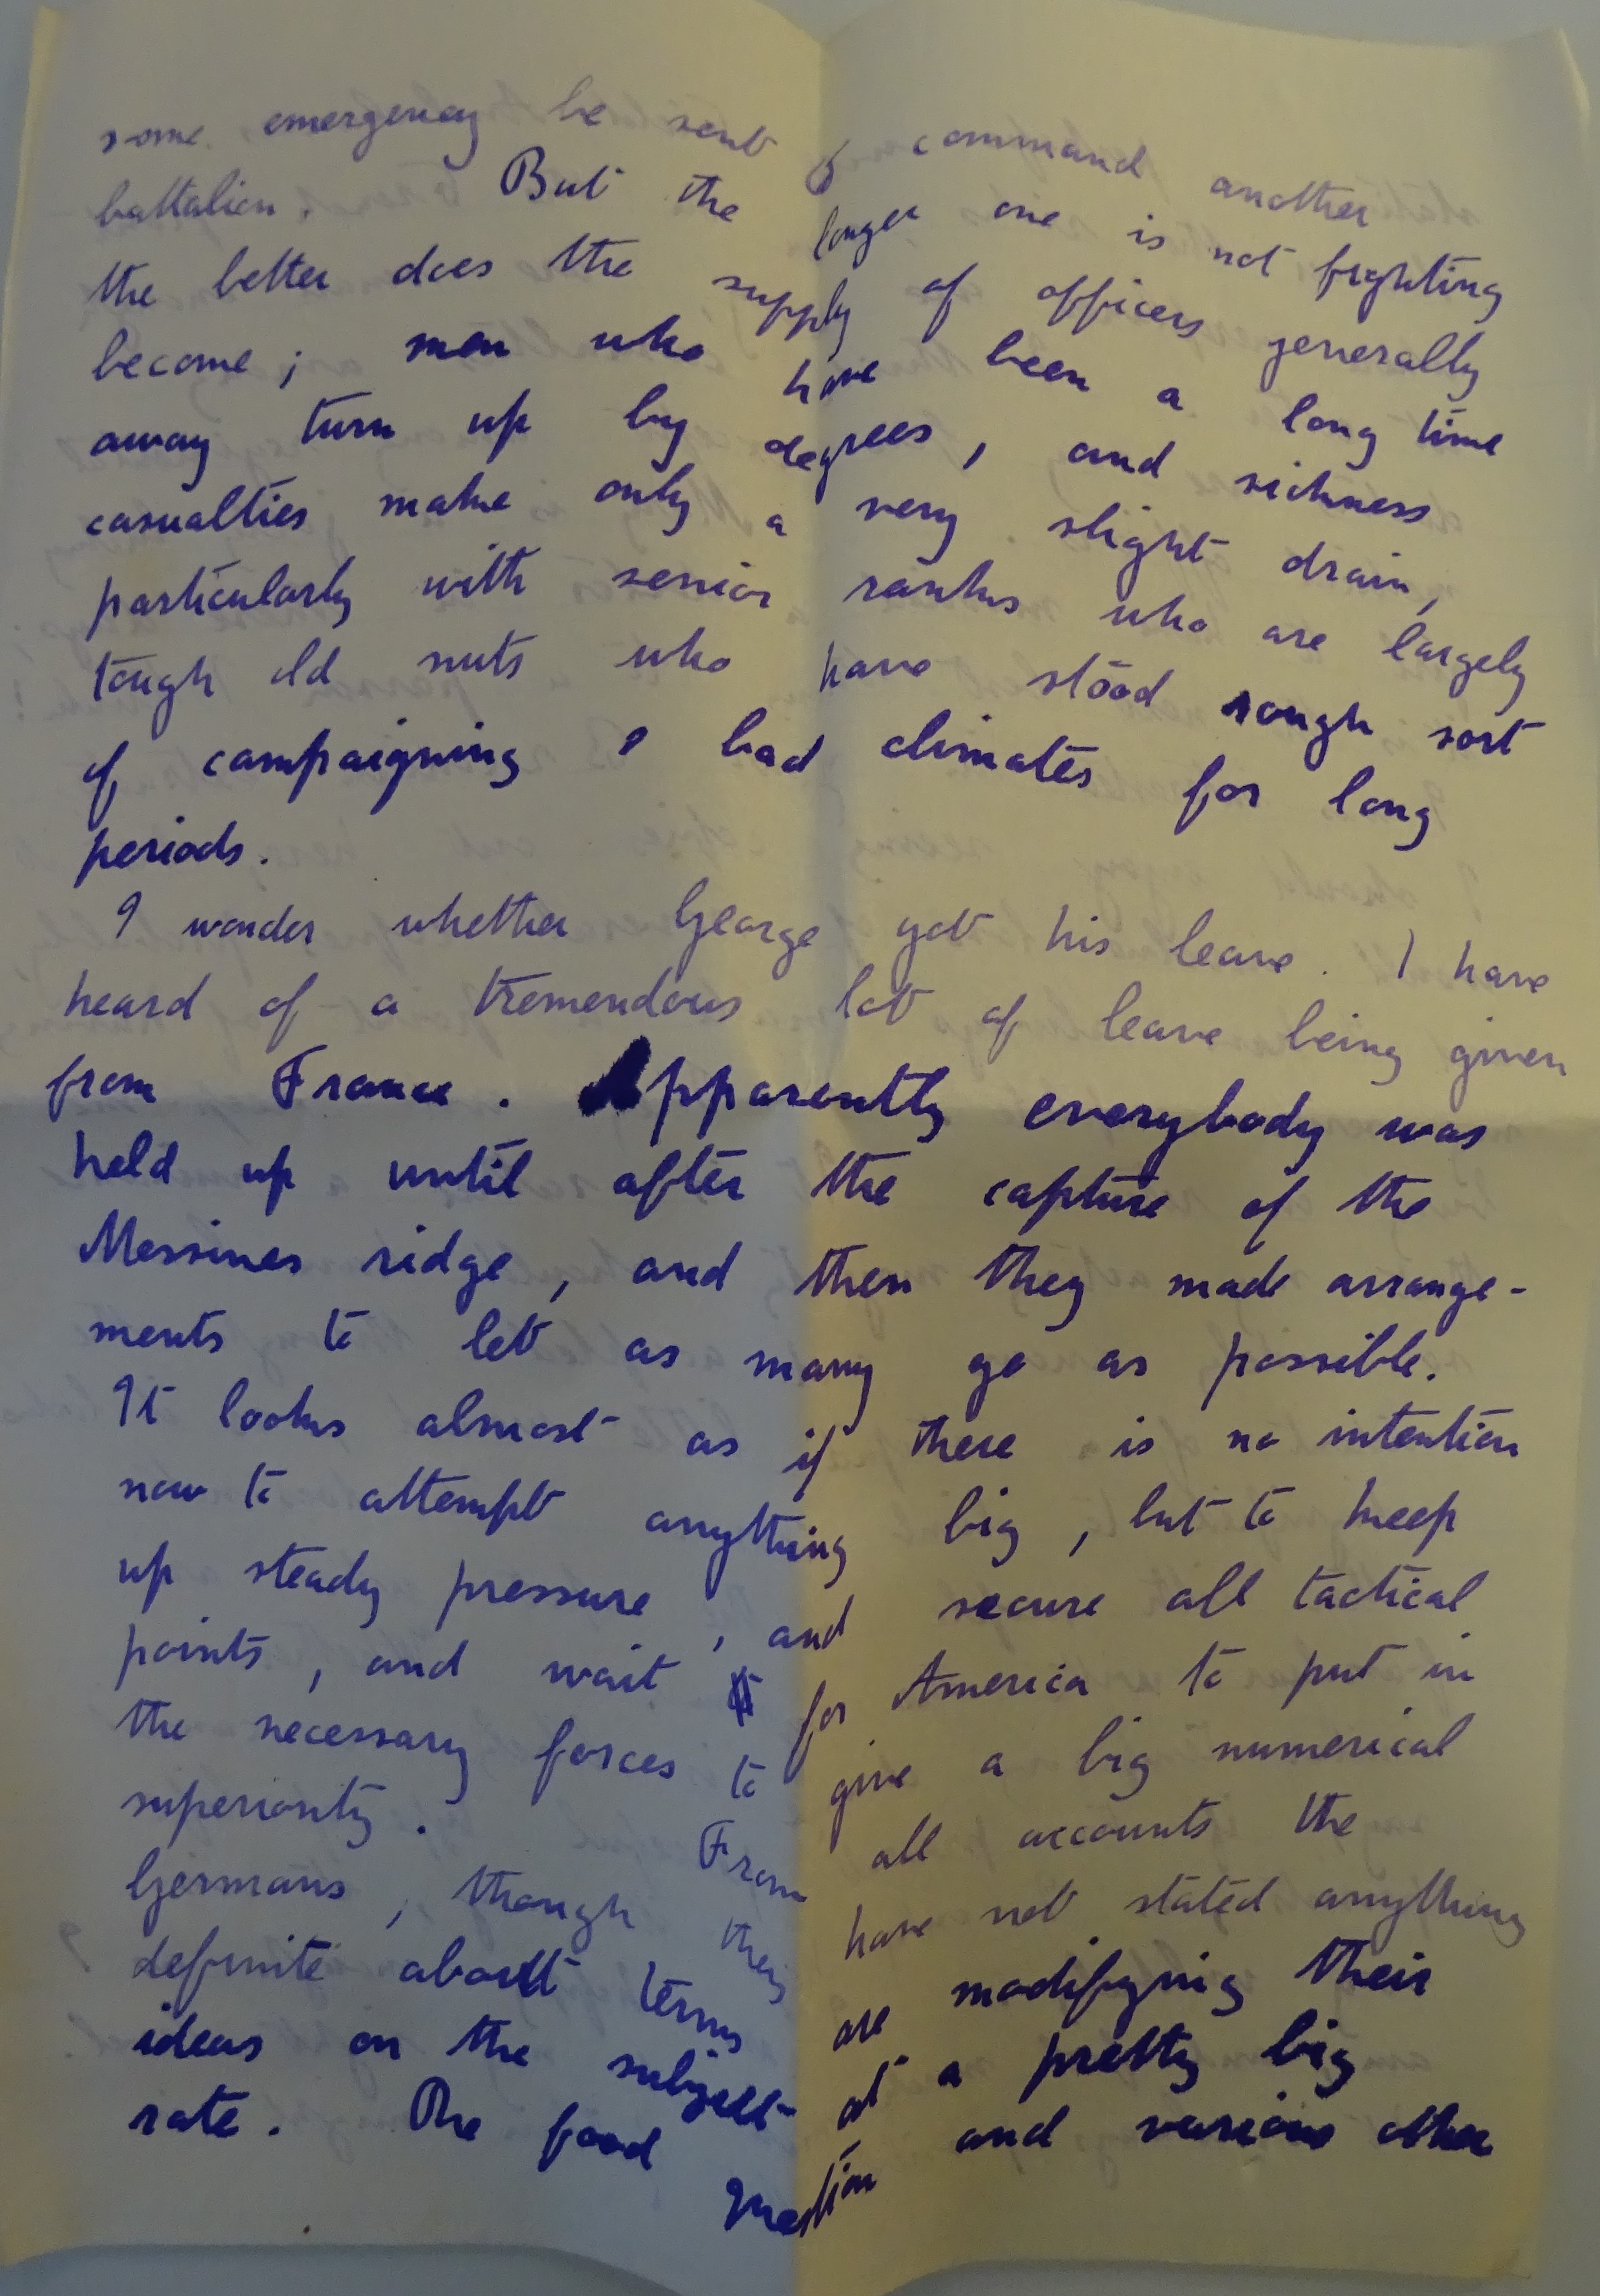 some emergency be sent to command another
battalion. But the longer one is not fighting
the better does the supply of officers generally
become; men who have been a long time
away turn up by degrees, and sickness
casualties make only a very slight drain,
particularly with senior ranks who are largely
tough old nuts who have stood rough sort
of campaigning & bad climates for long
periods.
I wonder whether George got his leave. I have
heard of a tremendous lot of leave being given
from France. Apparently everybody was
held up until after the capture of the
Messines ridge, and then they made arrange-
ments to let as many go as possible.
It looks almost as if there is no intention
now to attempt anything big, but to keep
up steady pressure, and secure all tactical
points, and wait for America to put in
the necessary forces to give a big numerical
superiority. From all accounts the
Germans, though they have not stated anything
definite about terms are modifying their
ideas on the subject at a pretty big
rate. The food question and various other